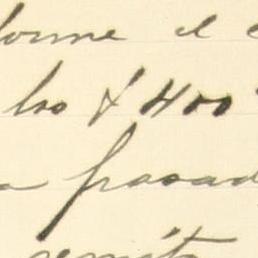 forme el c
los $ 400
a pasad
remito